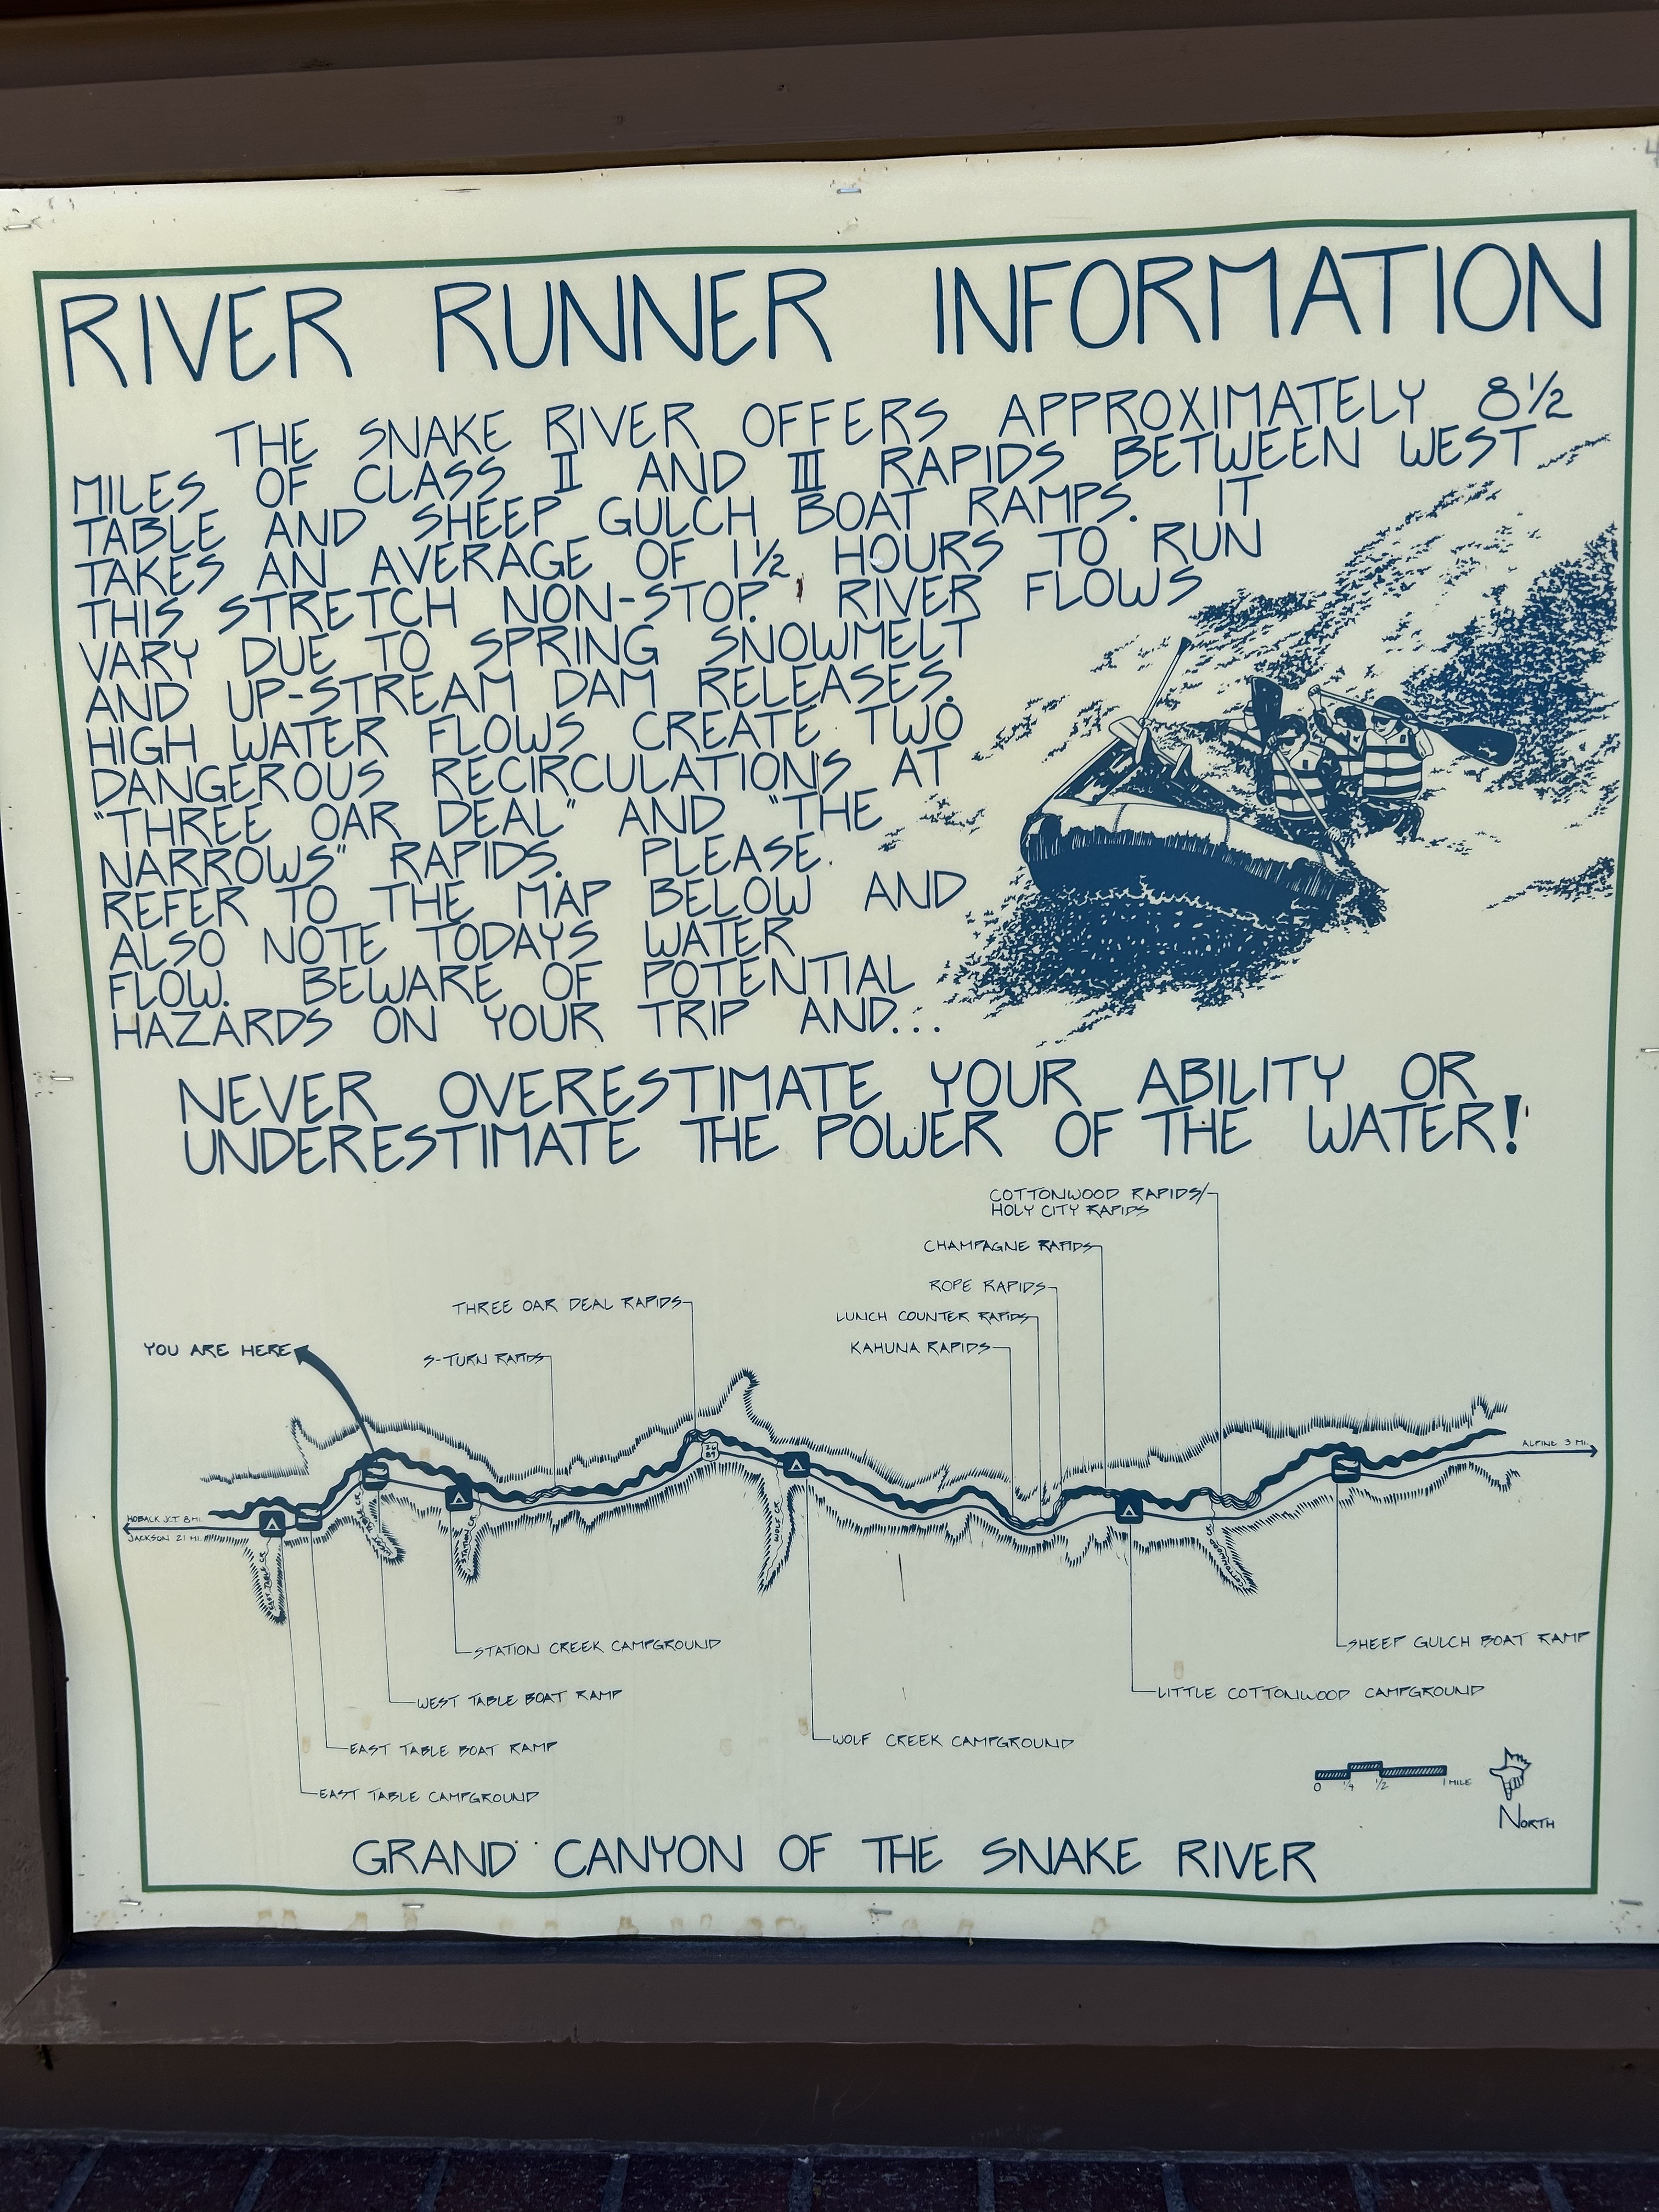 RIVER RUNNER INFORMATION
THE SNAKE RIVER OFFERS APPROXIMATELY 8 1/2
MILES OF CLASS II AND III RAPIDS BETWEEN WEST
TABLE AND SHEEP GULCH BOAT RAMPS. IT
TAKES AN AVERAGE OF 1 1/2 HOURS TO RUN
THIS STRETCH NON-STOP. RIVER FLOWS
VARY DUE TO SPRING SNOWMELT
AND UP-STREAM DAM RELEASES.
HIGH WATER FLOWS CREATE TWO
DANGEROUS RECIRCULATIONS AT
"THREE OAR DEAL" AND "THE
NARROWS" RAPIDS. PLEASE
REFER TO THE MAP BELOW AND
ALSO NOTE TODAYS WATER
FLOW. BEWARE OF POTENTIAL
HAZARDS ON YOUR TRIP AND...
NEVER OVERESTIMATE YOUR ABILITY OR
UNDERESTIMATE THE POWER OF THE WATER!
COTTONWOOD RAPIDS/
HOLY CITY RAPIDS
CHAMPAGNE RAPIDS
ROPE RAPIDS
THREE OAR DEAL RAPIDS
LUNCH COUNTER RAPIDS
YOU ARE HERE
S-TURN RAPIDS
KAHUNA RAPIDS
26
89
ALPINE 3 MI.
HOBACK JCT 8 MI.
JACKSON 21 MI.
EAST TABLE CR.
STATION CR.
WOLF CR.
STATION CREEK CAMPGROUND
SHEEP GULCH BOAT RAMP
WEST TABLE BOAT RAMP
LITTLE COTTONWOOD CAMPGROUND
EAST TABLE BOAT RAMP
WOLF CREEK CAMPGROUND
EAST TABLE CAMPGROUND
0 1/4 1/2 1 MILE
NORTH
GRAND CANYON OF THE SNAKE RIVER